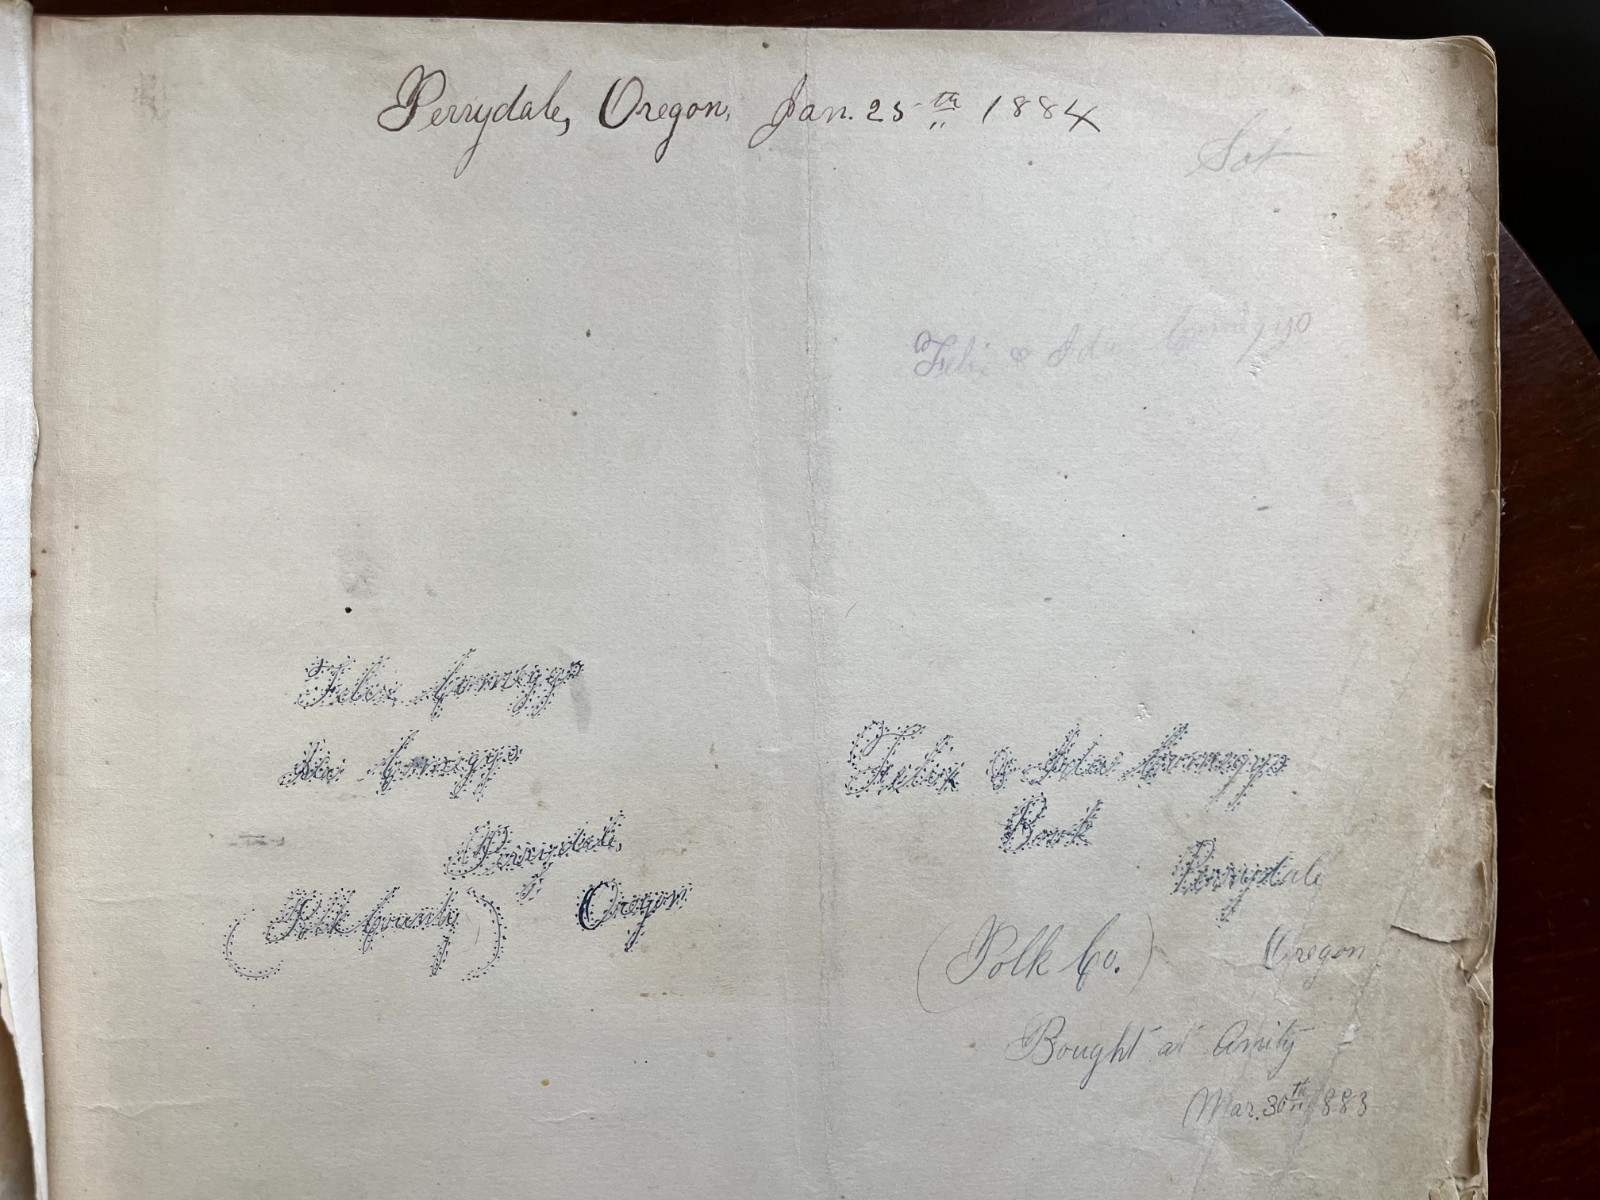 Perrydale, Oregon, Jan. 25th 1884
Felix & Ida Comegys
Felix Comegys
Ida Comegys
Perrydale,
(Polk County) Oregon
Felix & Ida Comegys
Book
Perrydale
(Polk Co.) Oregon
Bought at Amity
Mar. 30th 1883